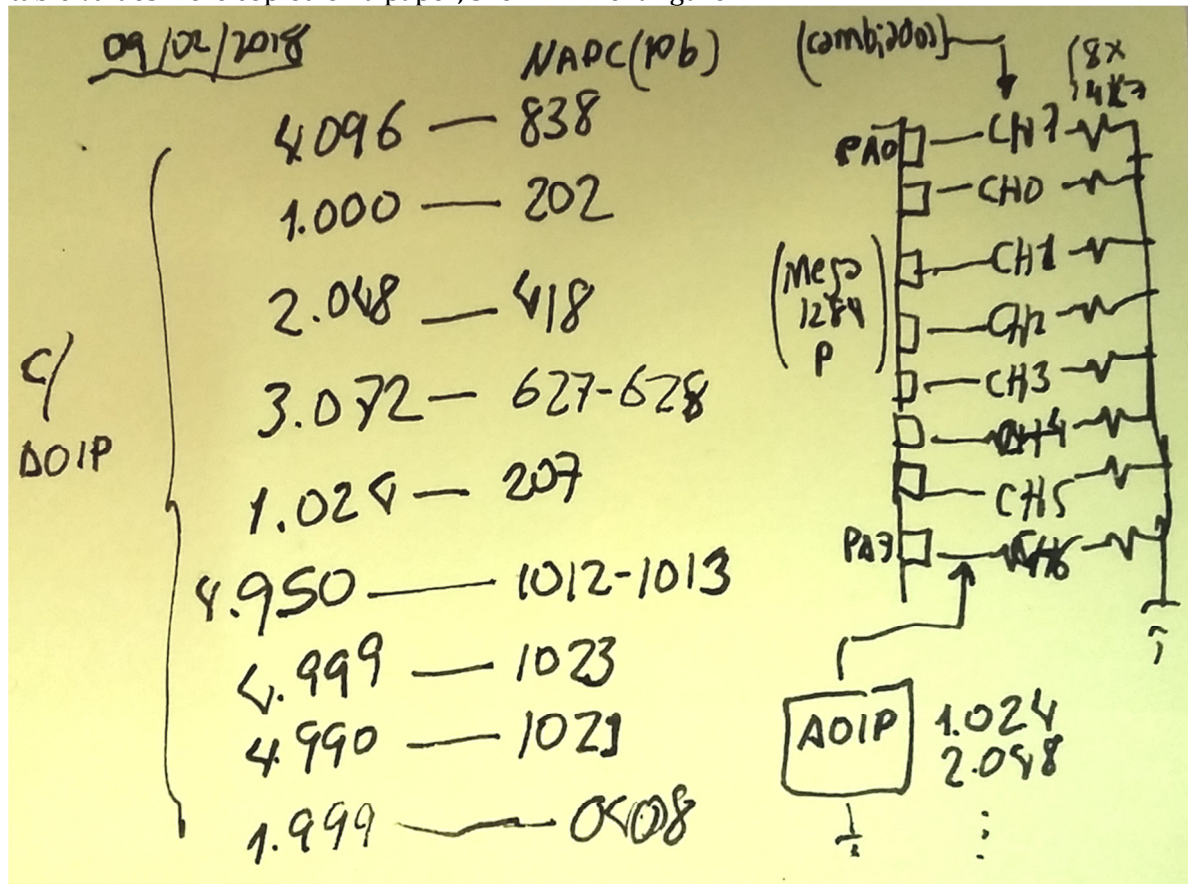 09/02/2018
NADC(10b)
4.096 — 838
1.000 — 202
2.048 — 418
3.072 — 627-628
1.024 — 207
4.950 — 1012-1013
4.999 — 1023
4.990 — 1021
1.999 — 0408
c/
AOIP
(cambiados)
8x
4K7
PA0 CH7
CH0
CH1
CH2
CH3
CH4
CH5
PA7 CH6
(Mega
1284
P)
AOIP
1.024
2.048
⋮